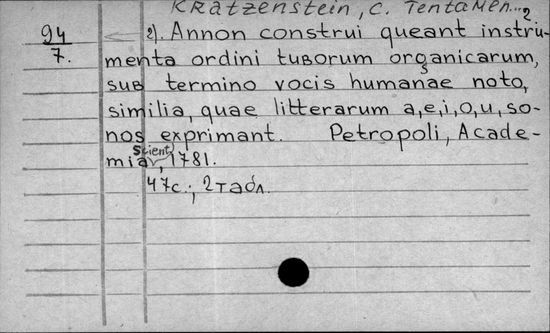 Kratzenstein, C. Tentamen... 2
94
7.
2). Annon construi queant instru-
menta ordini tuborum organicarum,
s
sub termino vocis humanae noto,
similia, quae litterarum a, e, i, o, u, so-
nos exprimant. Petropoli, Acade-
Scient.
mia, 1781.
47с.; 2 табл.